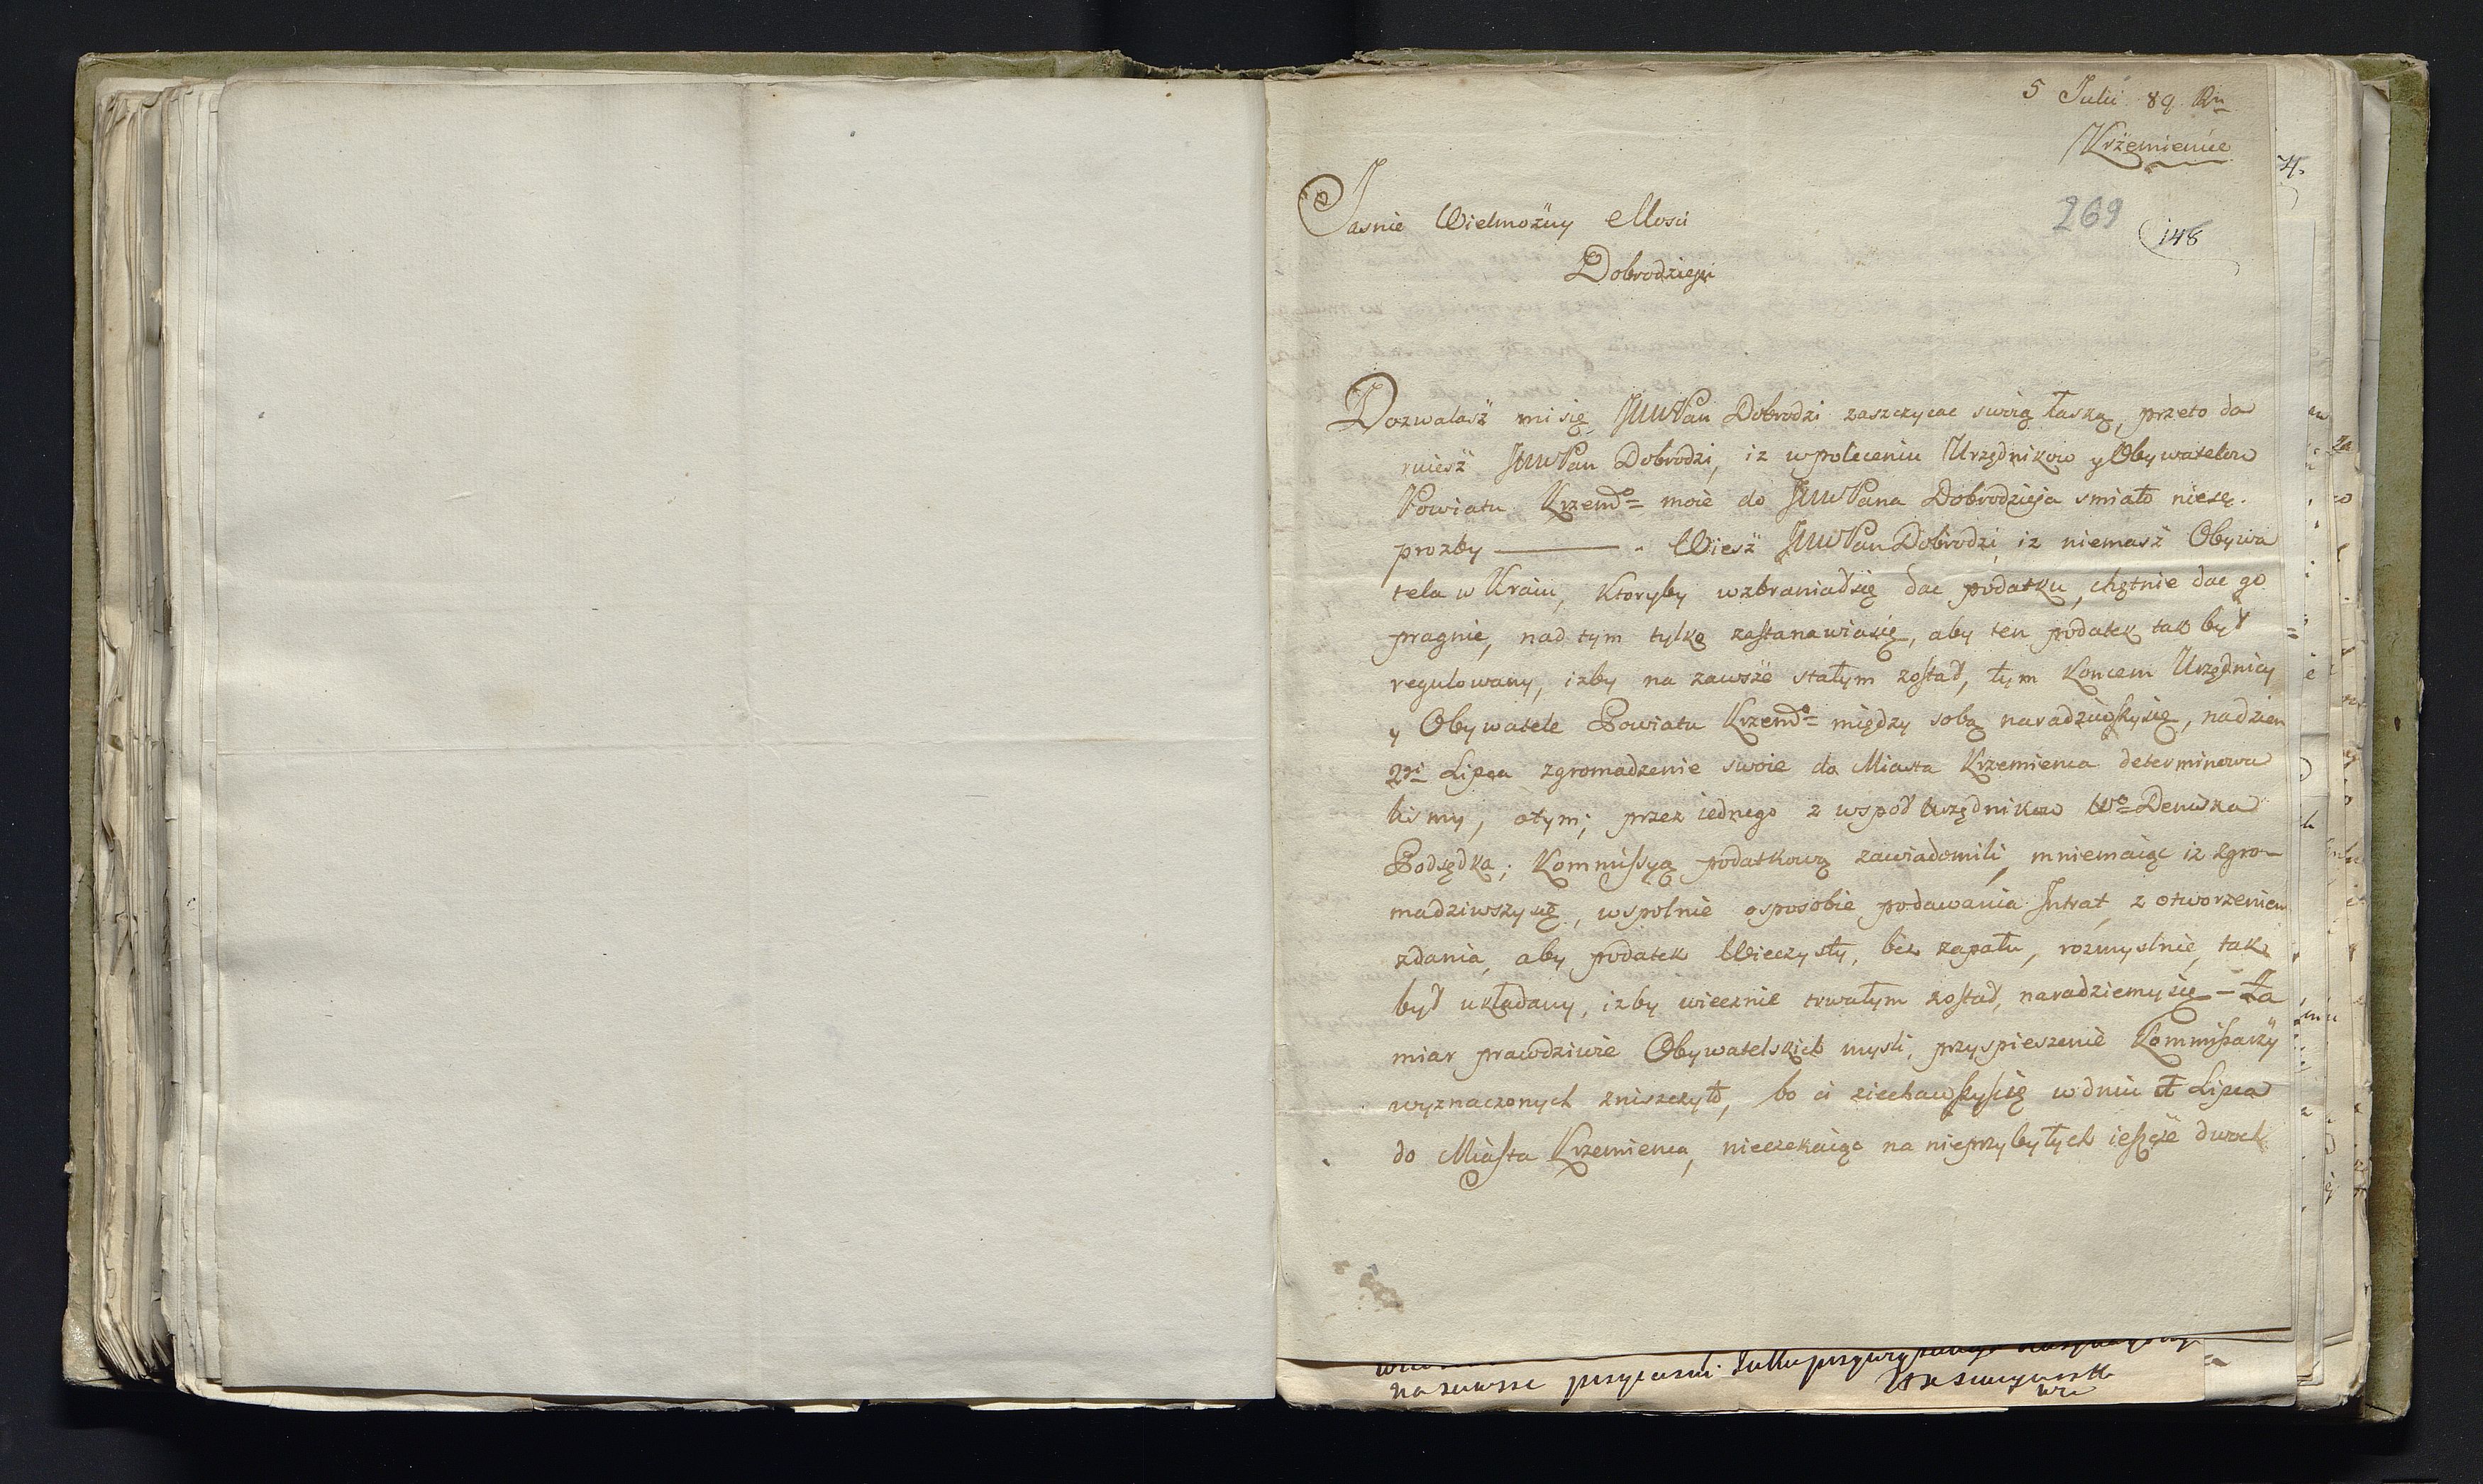 5 Julii 89 Ru
Krżemieniec
269
148
Jasnie Wielmożny Mosci
Dobrodzieju
Dozwalasż mi się JWWPan Dobrodzi zaszczycac swoią łaską, przeto da
ruiesż JWWPan Dobrodzi, iz w poleceniu Urzędnikow y Obywatelow
Powiatu Krzemo= moie do JWWPana Dobrodzieja smiało niesę
prozby ——— . Wiesż JWWPan Dobrodzi, iz niemasż Obywa
tela w Kraiu, ktoryby wzbraniał się dac podatku, chętnie dac go
pragnie, nad tym tylko zastanawia się, aby ten podatek tak był
regulowany, izby na zawsże stałym został, tym koncem Urzędnicy
y Obywatele Powiatu Krzemo= między sobą naradziwszy się, na dzien
2gi Lipca zgromadzenie swoie do Miasta Krzemienca determinowa
lismy, o tym; przez iednego z wspoł Urzędnikow Wo= Deniska
Podsędka; Kommissyą podatkową zawiadomili, mniemaiąc iz zgro-
madziwszy się, wspolnie o sposobie podawania Intrat, z otworzeniem
zdania, aby podatek Wieczysty, bez zapału, rozmyslnie, tak
był układany, izby wiecznie trwałym został, naradziemy się – Za
miar prawdziwie Obywatelskich mysli, przyspieszenie Kommissarzÿ
wyznaczonych zniszczyło, bo ci ziechawszy się w dniu 1 Lipca
do Miasta Krzemienca, nieczekaiąc na nieprzybyłych ieszcże dwoch
na zawsze